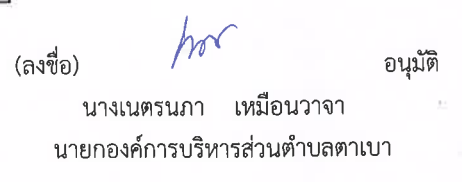 (ลงชื่อ) อนุมัติ
นางเนตรนภา เหมือนวาจา
นายกองค์การบริหารส่วนตำบลตาเบา